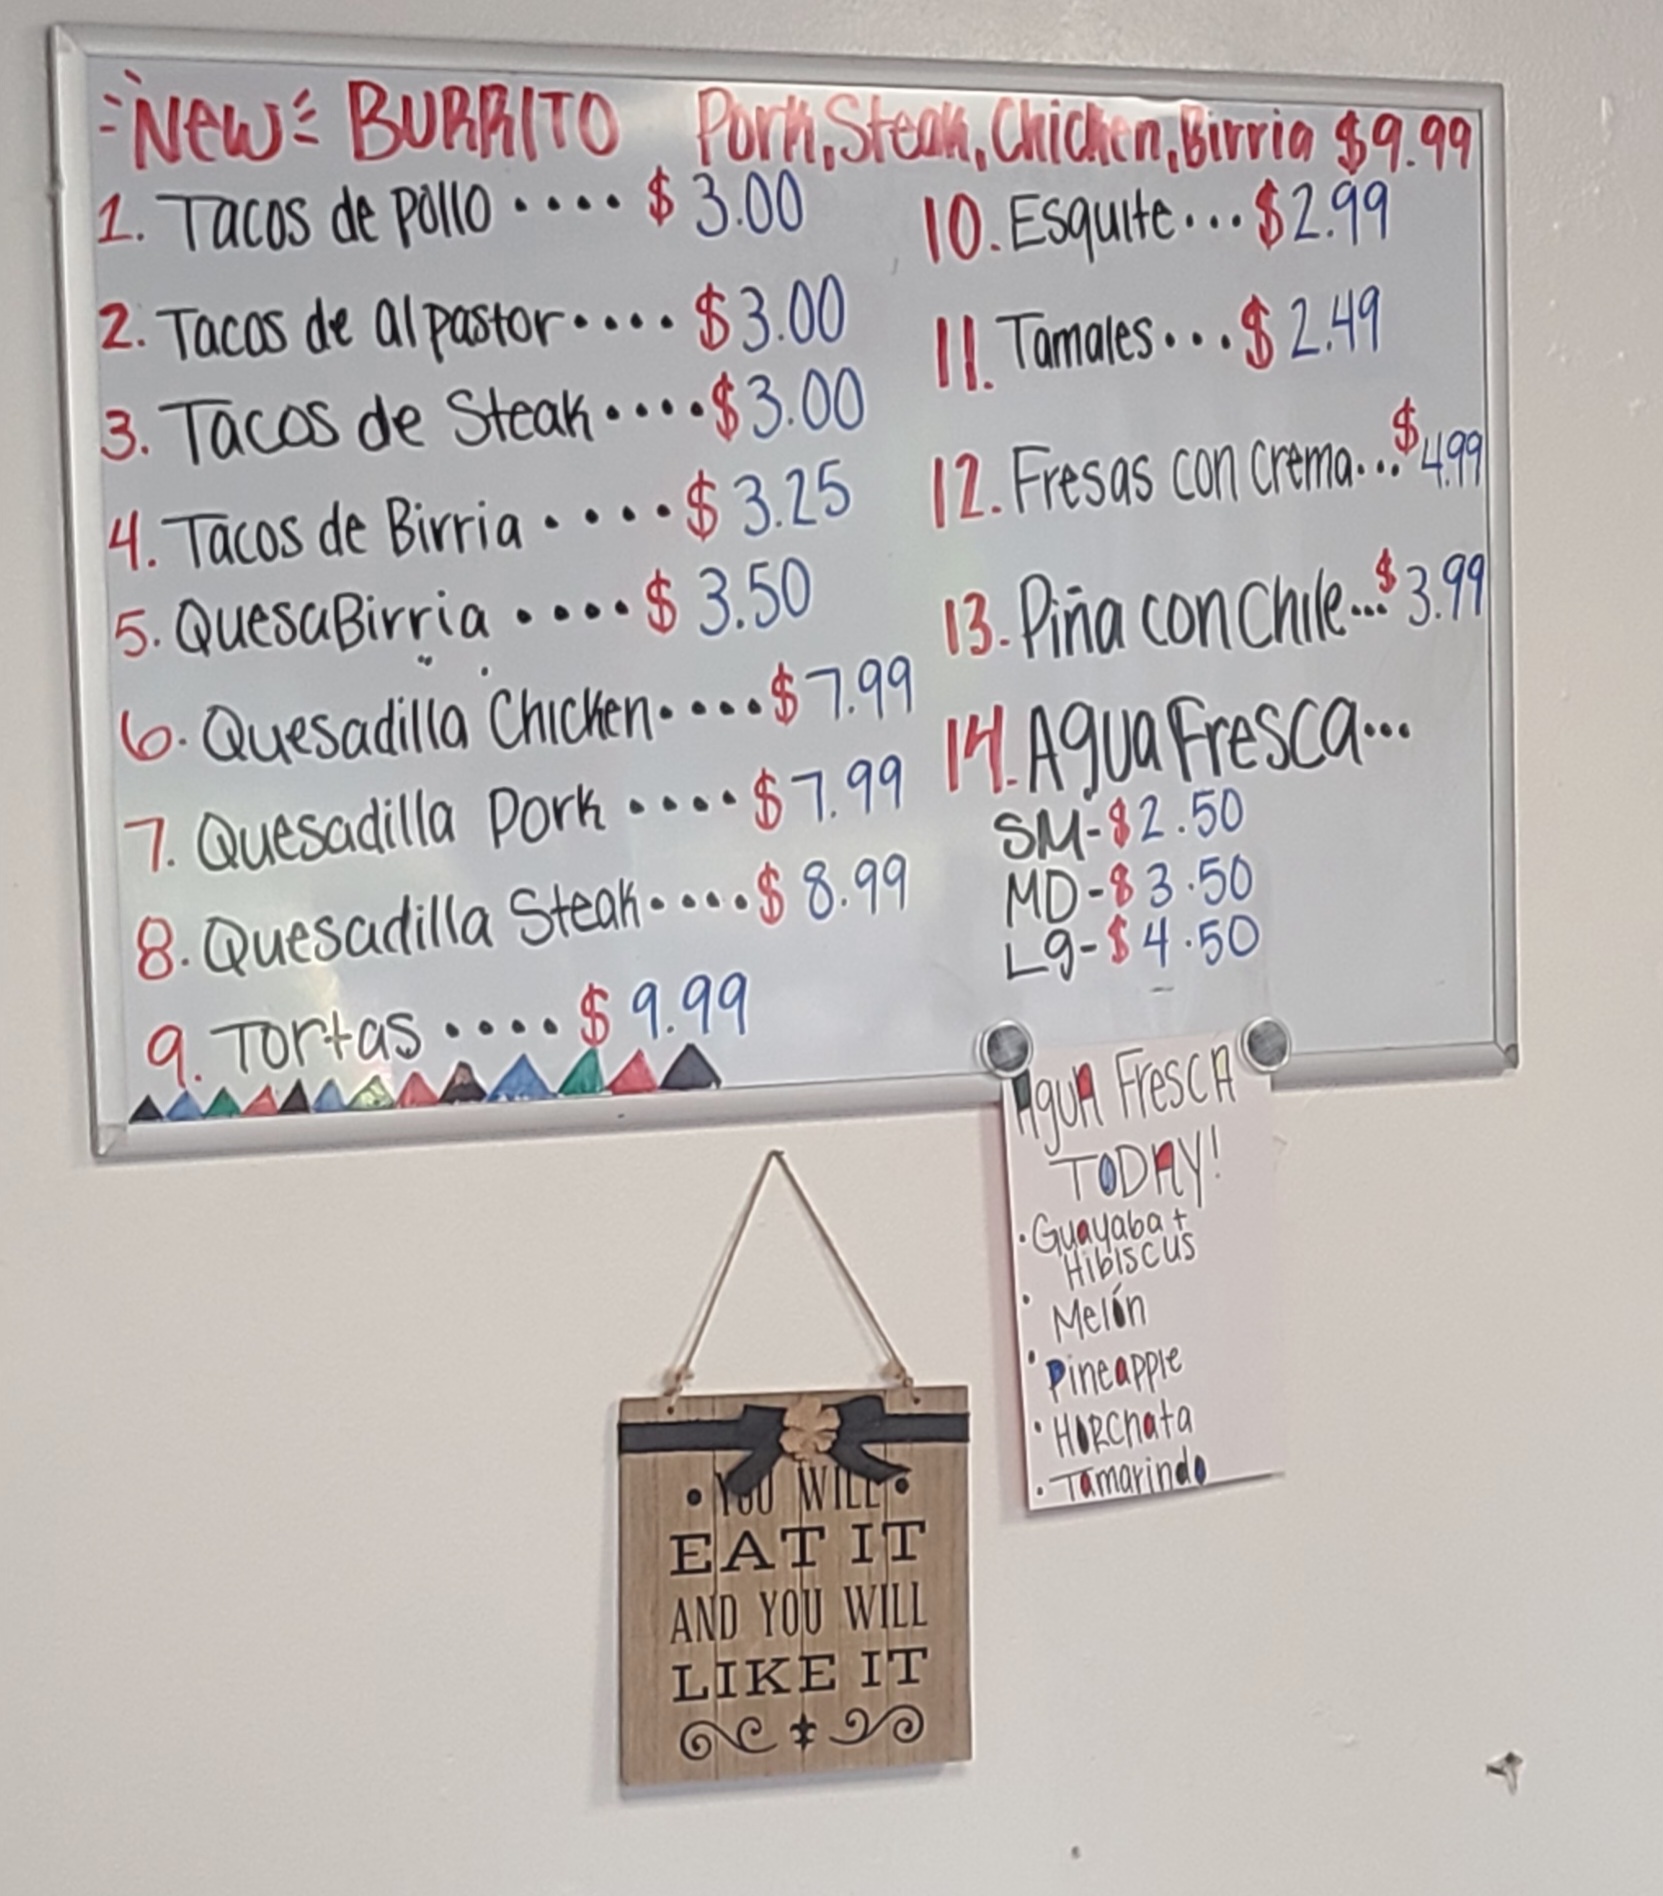 NEW BURRITO Pork, Steak, Chicken, Birria $9.99
1. Tacos de pollo .... $3.00
2. Tacos de al pastor .... $3.00
3. Tacos de Steak .... $3.00
4. Tacos de Birria ..... $3.25
5. QuesaBirria .... $3.50
6. Quesadilla Chicken .... $7.99
7. Quesadilla Pork .... $7.99
8. Quesadilla Steak .... $8.99
9. Tortas .... $9.99
10. Esquite ... $2.99
11. Tamales ... $2.49
12. Fresas con crema ... $4.99
13. Piña con Chile ... $3.99
14. Agua Fresca ...
SM - $2.50
MD - $3.50
Lg - $4.50
Agua Fresca
TODAY!
• Guayaba +
Hibiscus
• Melón
• Pineapple
• Horchata
• Tamarindo
• YOU WILL •
EAT IT
AND YOU WILL
LIKE IT